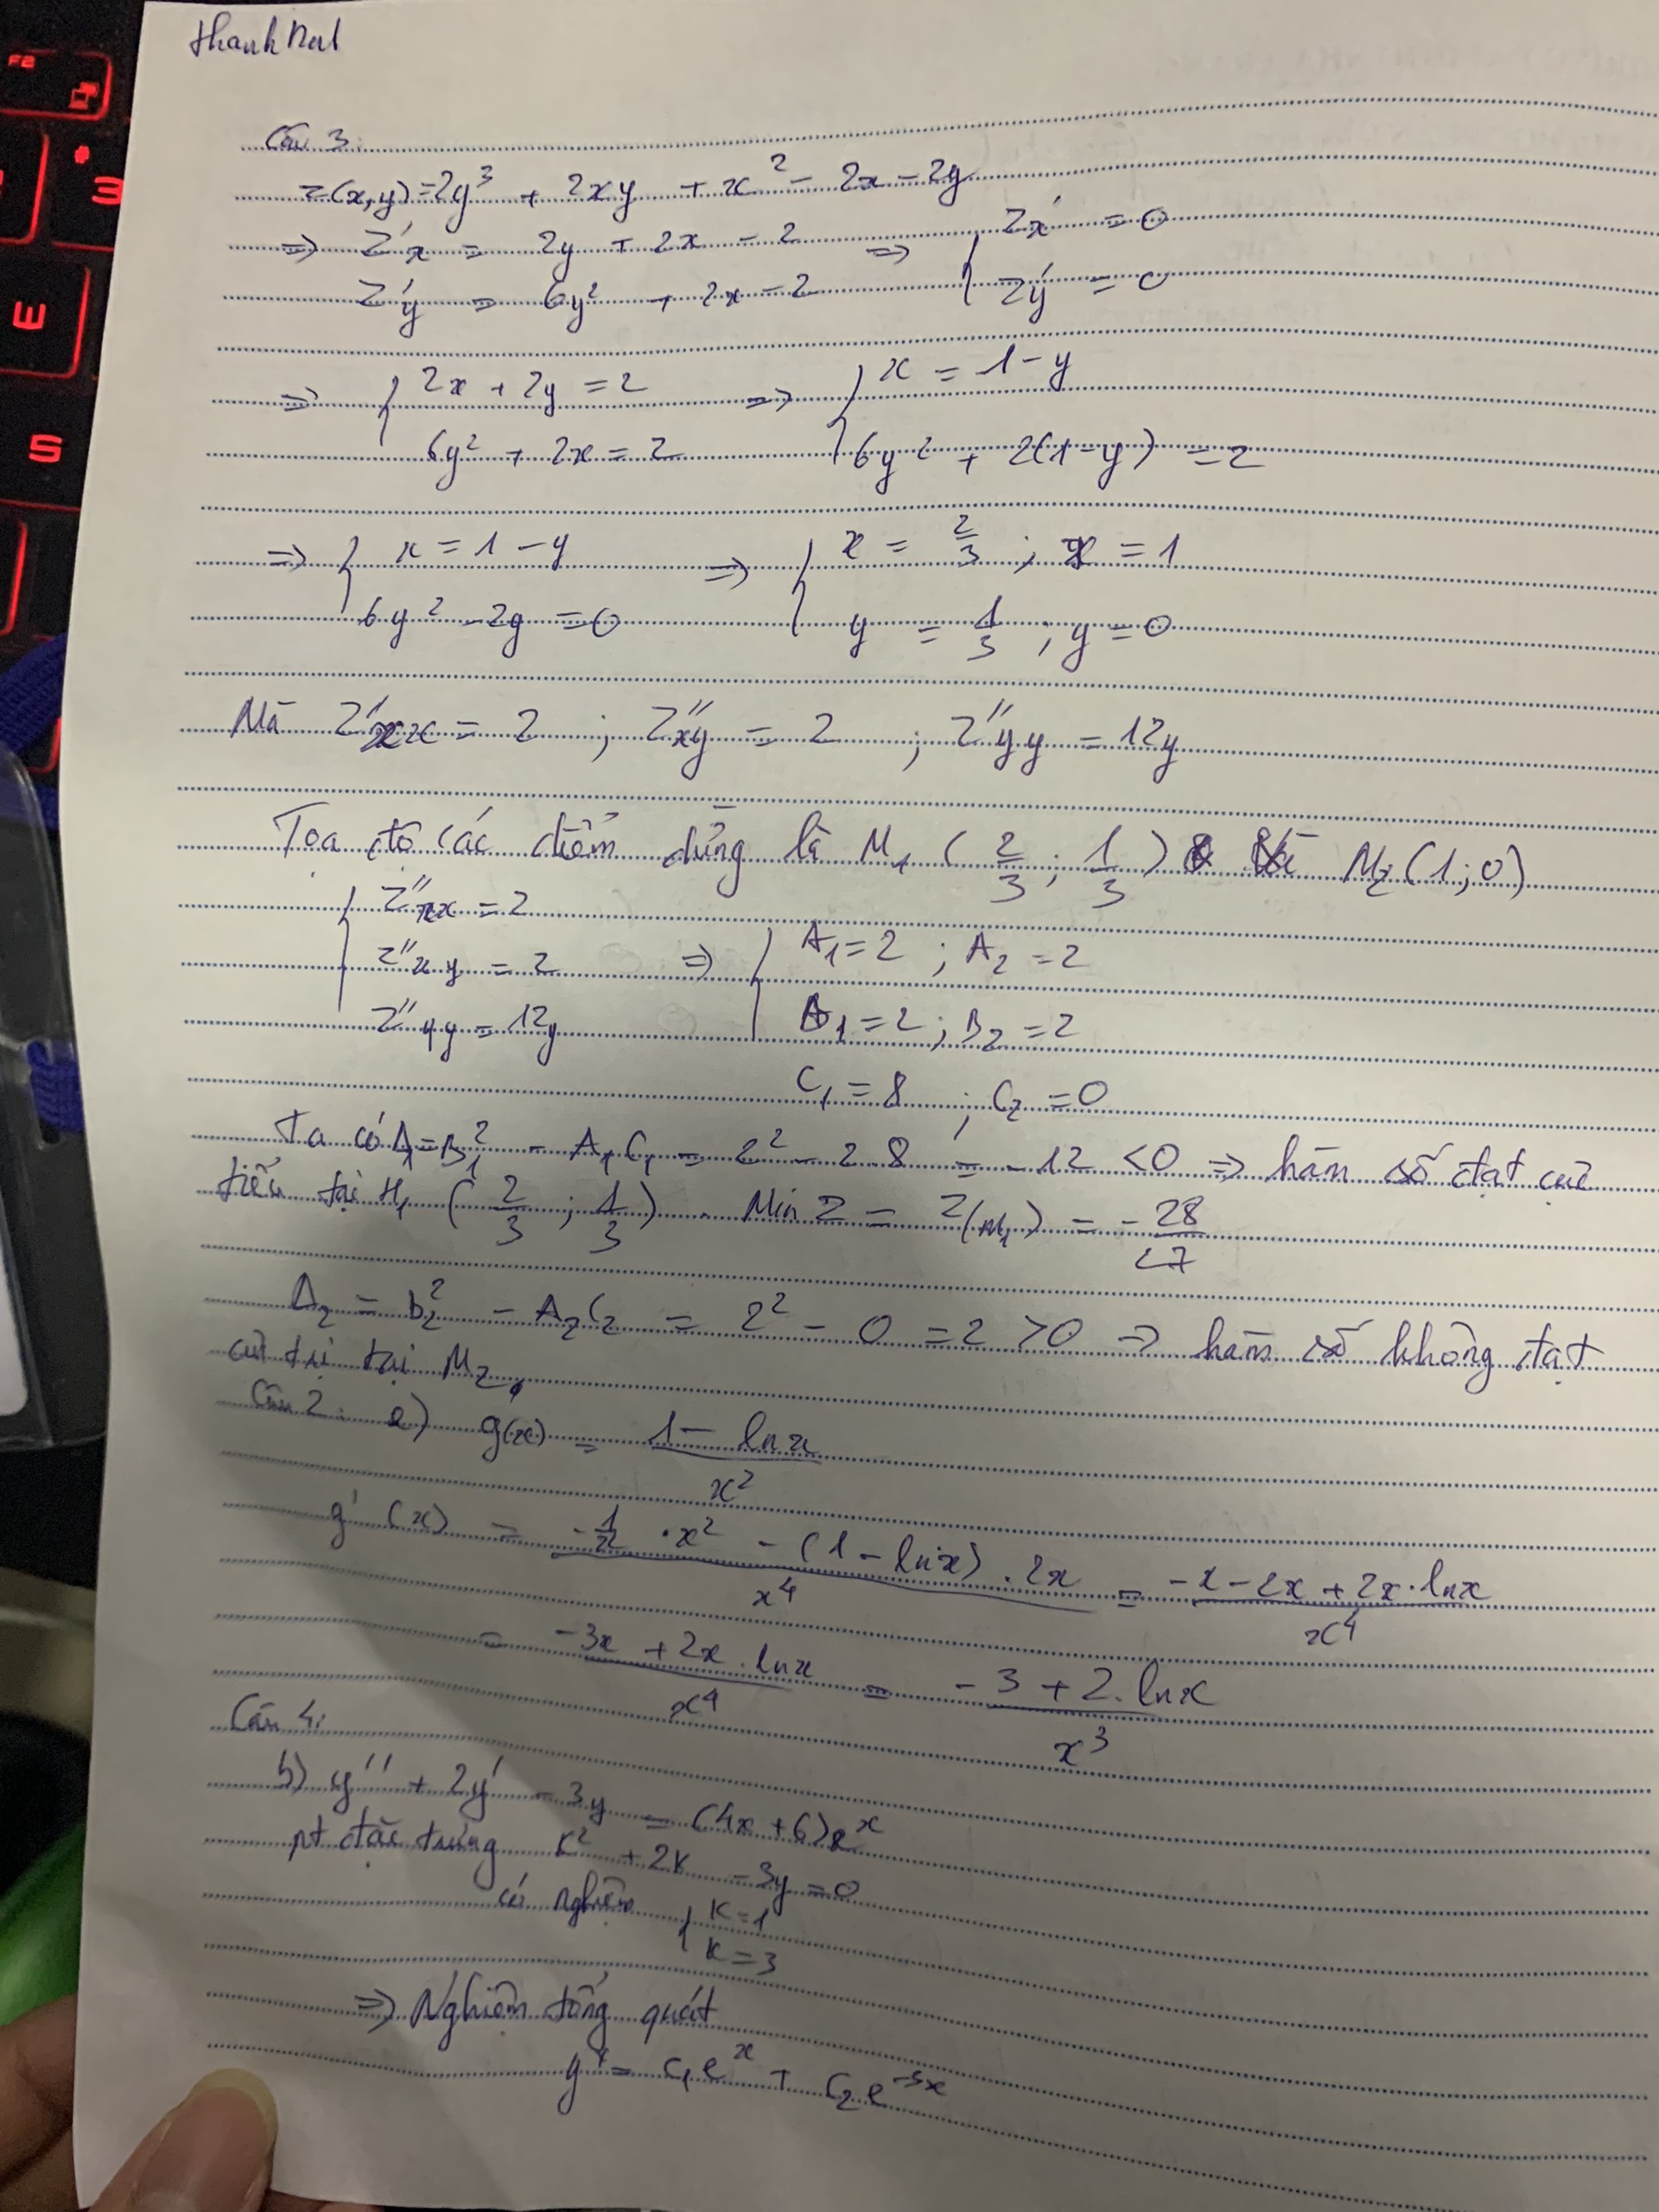 Câu 3:
z(x,y) = 2y³ + 2xy + x² - 2x - 2y
=> Z'x = 2y + 2x - 2 => { Zx' = 0
Z'y = 6y² + 2x - 2 Zy' = 0
=> { 2x + 2y = 2 => { x = 1 - y
6y² + 2x = 2 6y² + 2(1-y) = 2
=> { x = 1 - y => { x = 2/3 ; x = 1
6y² - 2y = 0 y = 1/3 ; y = 0
Mà Z''xx = 2 ; Z''xy = 2 ; Z''yy = 12y
Tọa độ các điểm dừng là M₁ (2/3 ; 1/3) và M₂ (1 ; 0)
{ Z''xx = 2
Z''xy = 2 => { A₁ = 2 ; A₂ = 2
Z''yy = 12y B₁ = 2 ; B₂ = 2
C₁ = 8 ; C₂ = 0
Ta có Δ₁ = B₁² - A₁C₁ = 2² - 2.8 = -12 < 0 => hàm số đạt cực
tiểu tại M₁ (2/3 ; 1/3) . Min Z = Z(M₁) = -28/27
Δ₂ = b₂² - A₂C₂ = 2² - 0 = 2 > 0 => hàm số không đạt
cực trị tại M₂.
Câu 2: a) g(x) = (1 - lnx)/x²
g'(x) = (-1/x . x² - (1 - lnx) . 2x)/x⁴ = (-x - 2x + 2x.lnx)/x⁴
= (-3x + 2x.lnx)/x⁴ = (-3 + 2.lnx)/x³
Câu 4:
b) y'' + 2y' - 3y = (4x+6)eˣ
pt đặc trưng K² + 2K - 3y = 0
có nghiệm { K = 1
K = 3
=> Nghiệm tổng quát
= C₁eˣ + C₂e⁻³ˣ